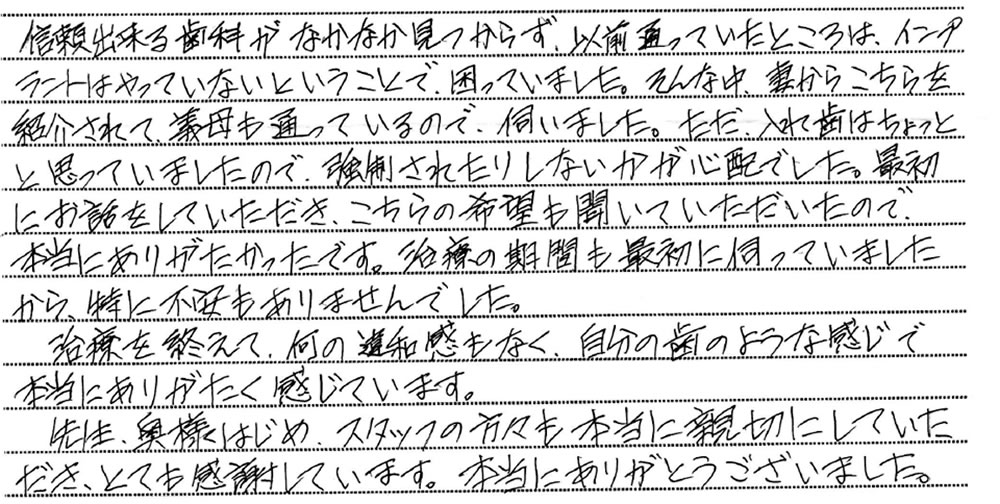 信頼出来る歯科がなかなか見つからず、以前通っていたところは、インプ
ラントはやっていないということで、困っていました。そんな中、妻からこちらを
紹介されて、義母も通っているので、伺いました。ただ、入れ歯はちょっと
と思っていましたので、強制されたりしないかが心配でした。最初
にお話をしていただき、こちらの希望も聞いていただいたので、
本当にありがたかったです。治療の期間も最初に伺っていました
から、特に不安もありませんでした。
治療を終えて、何の違和感もなく、自分の歯のような感じで
本当にありがたく感じています。
先生、奥様はじめ、スタッフの方々も本当に親切にしていた
だき、とても感謝しています。本当にありがとうございました。